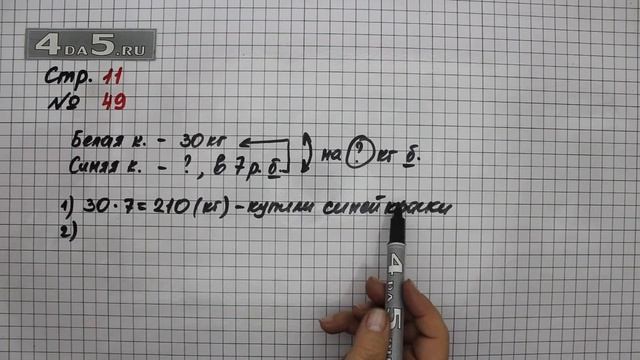 4DA5.RU
Стр. 11
№ 49
Белая к. - 30 кг
Синяя к. - ?, в 7 р. б.
на ? кг б.
1) 30 · 7 = 210 (кг) - купили синей краски
2)
4 DA 5